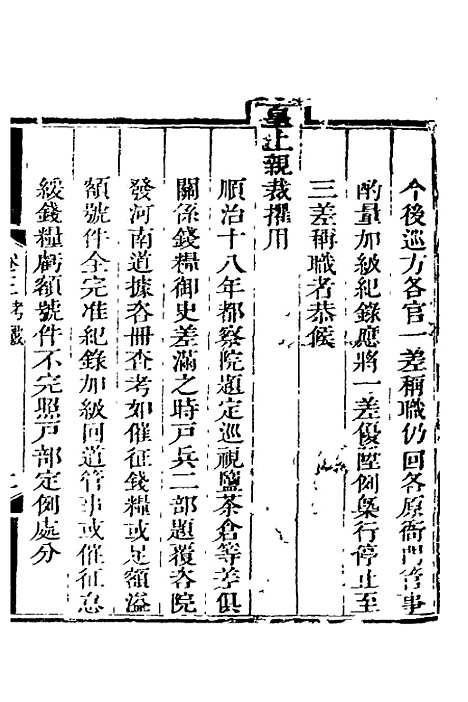 今後巡方各官一差稱職仍回各原衙門管事
酌量加級紀錄應將一差優陞例槩行停止至
三差稱職者恭候
皇上親裁擢用
順治十八年都察院題定巡視鹽茶倉等差俱
關係錢糧御史差滿之時戸兵二部題覆咨院
發河南道據咨冊查考如催征錢糧或足額溢
額號件全完准紀錄加級回道管事或催征怠
緩錢糧虧額號件不完照戸部定例處分